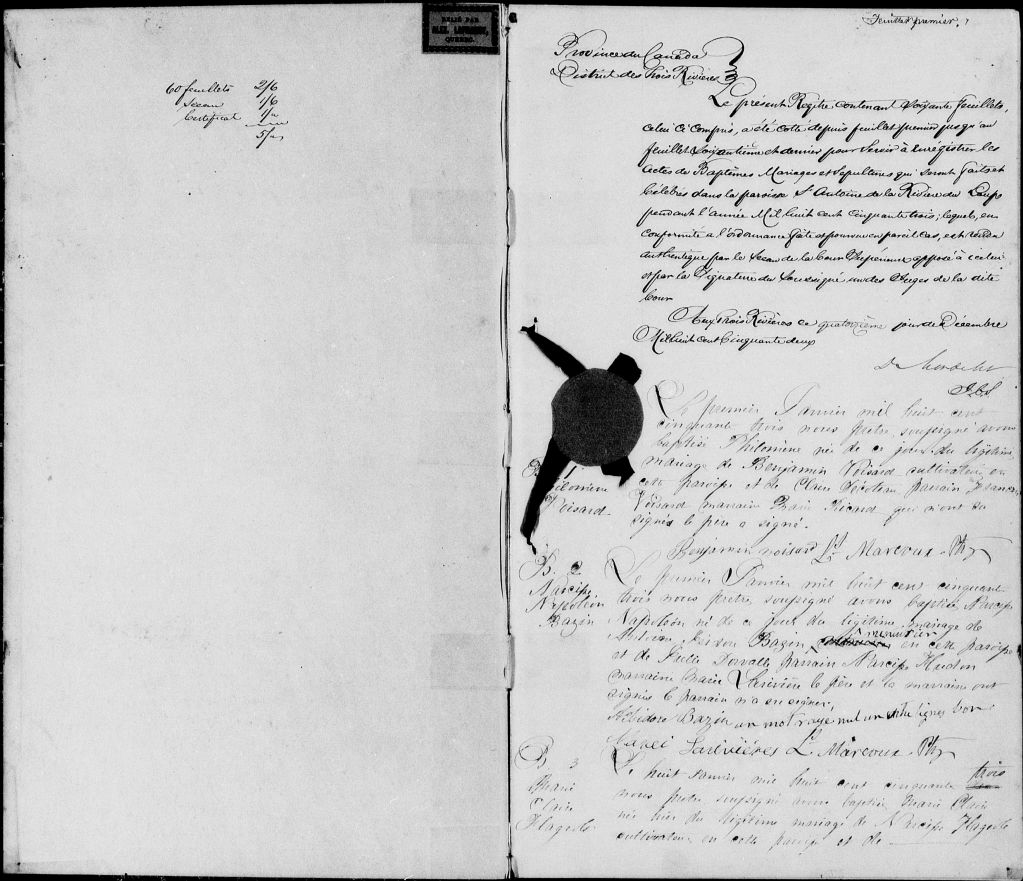 60 feuillets 2/6
Sceau 1/6
Certificat 1/"
5/"
RELIÉ PAR
QUEBEC.
Feuillet premier. 1
Province du Canada
District des Trois Rivières
Le présent Regitre contenant Soixante feuillets,
celui ci compris, a été coté depuis feuillet premier jusqu'au
feuillet Soixantième et dernier pour Servir à enrégistrer les
Actes de Baptêmes Mariages et Sépultures qui seront faits et
Célébrés dans la paroisse St Antoine de la Rivière du Loup
pendant l'année Mil huit cent cinquante trois; lequel, en
conformité a l'ordonnance faite et pourvue en pareil cas, est rendu
authentique par le Sceau de la Cour Supérieure apposé à icelui
et par la Signature du Soussigné un des Juges de la dite
Cour
Aux Trois Rivières ce quatorzième jour de Décembre
Mil huit cent Cinquante deux
Le premier Janvier mil huit cent
cinquante trois nous prêtre soussigné avons
baptisé Philomène née de ce jour du légitime
mariage de Benjamin Voisard cultivateur en
cette paroisse et de Claire parrain
Voisard marraine Marie Ricard qui n'ont su
signer le père a signé.
Benjamin voisard Ls Marcoux Ptre
B. 1
Philomène
Voisard
B. 2
Narcisse
Napoléon
Bazin
Le premier Janvier mil huit cent cinquante
trois nous prêtre soussigné avons baptisé Narcisse
Napoléon né de ce jour du légitime mariage de
Bazin menuisier en cette paroisse
et de parrain Narcisse Hudon
marraine Marie Larivière le père et la marraine ont
signés le parrain n'a su signer.
Bazin un mot rayé nul un entre lignes bon
Larivières Ls Marcoux Ptre
B 3
Marie
Claire
Le huit Janvier mil huit cent cinquante trois
nous prêtre soussigné avons baptisé Marie Claire
née hier du légitime mariage de Narcisse
cultivateur en cette paroisse et de